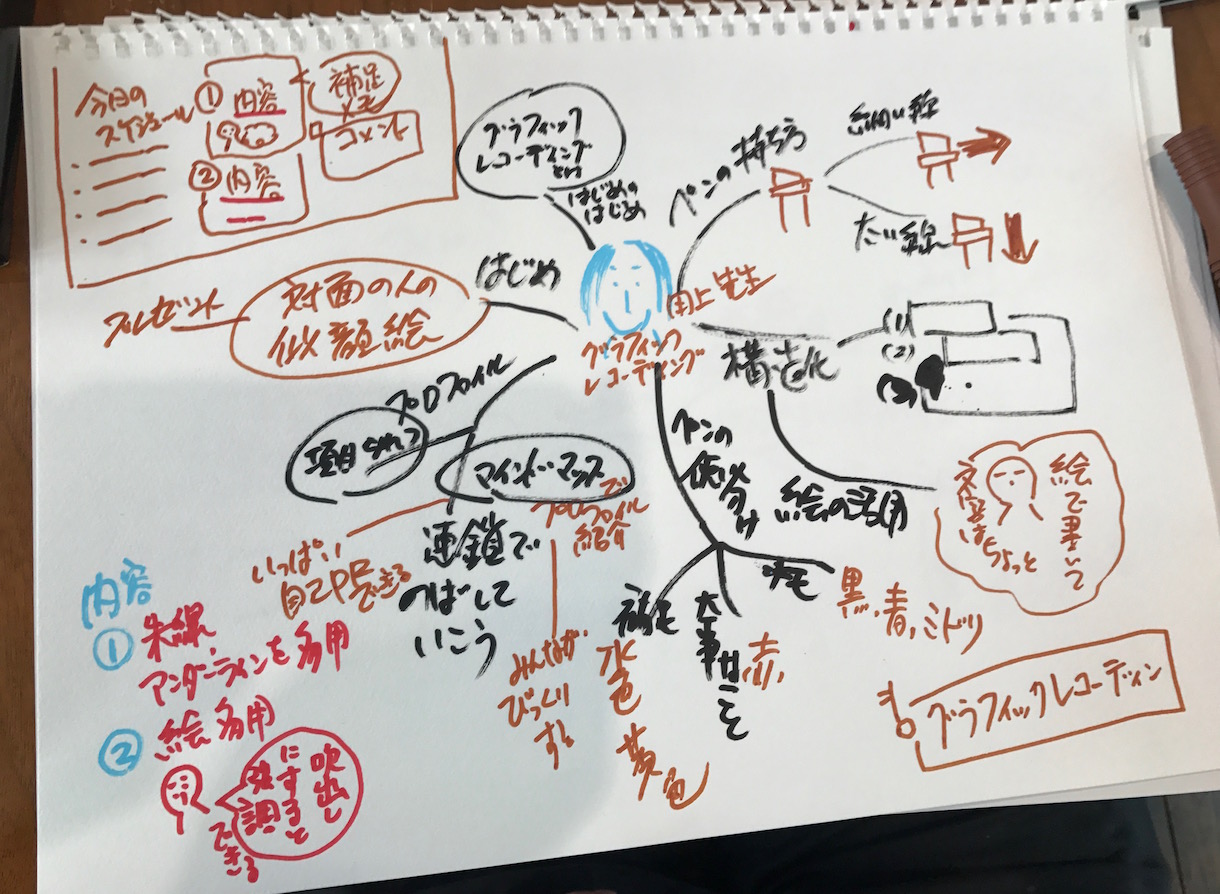 今日の
スケジュール
① 内容
② 内容
補足
メモ
コメント
グラフィック
レコーディング
とは
はじめの
はじめ
ペンの持ち方
細い線
たい線
はじめ
対面の人の
似顔絵
プレゼント
先生
グラフィック
レコーディング
構造化
(1)
(2)
(3)
プロフィール
項目
マインドマップ
で
プロフィール
紹介
いっぱい
自己PR
できる
連鎖で
のばして
いこう
みんなが
びっくり
する
ペンの
使い分け
絵の活用
絵で書いて
文字はちょっと
黒、青、ミドリ
大事なこと
赤
水色
黄色
内容
① 朱線、
アンダーラインを多用
② 絵多用
吹出し
にすると
強調
できる
グラフィックレコーディン